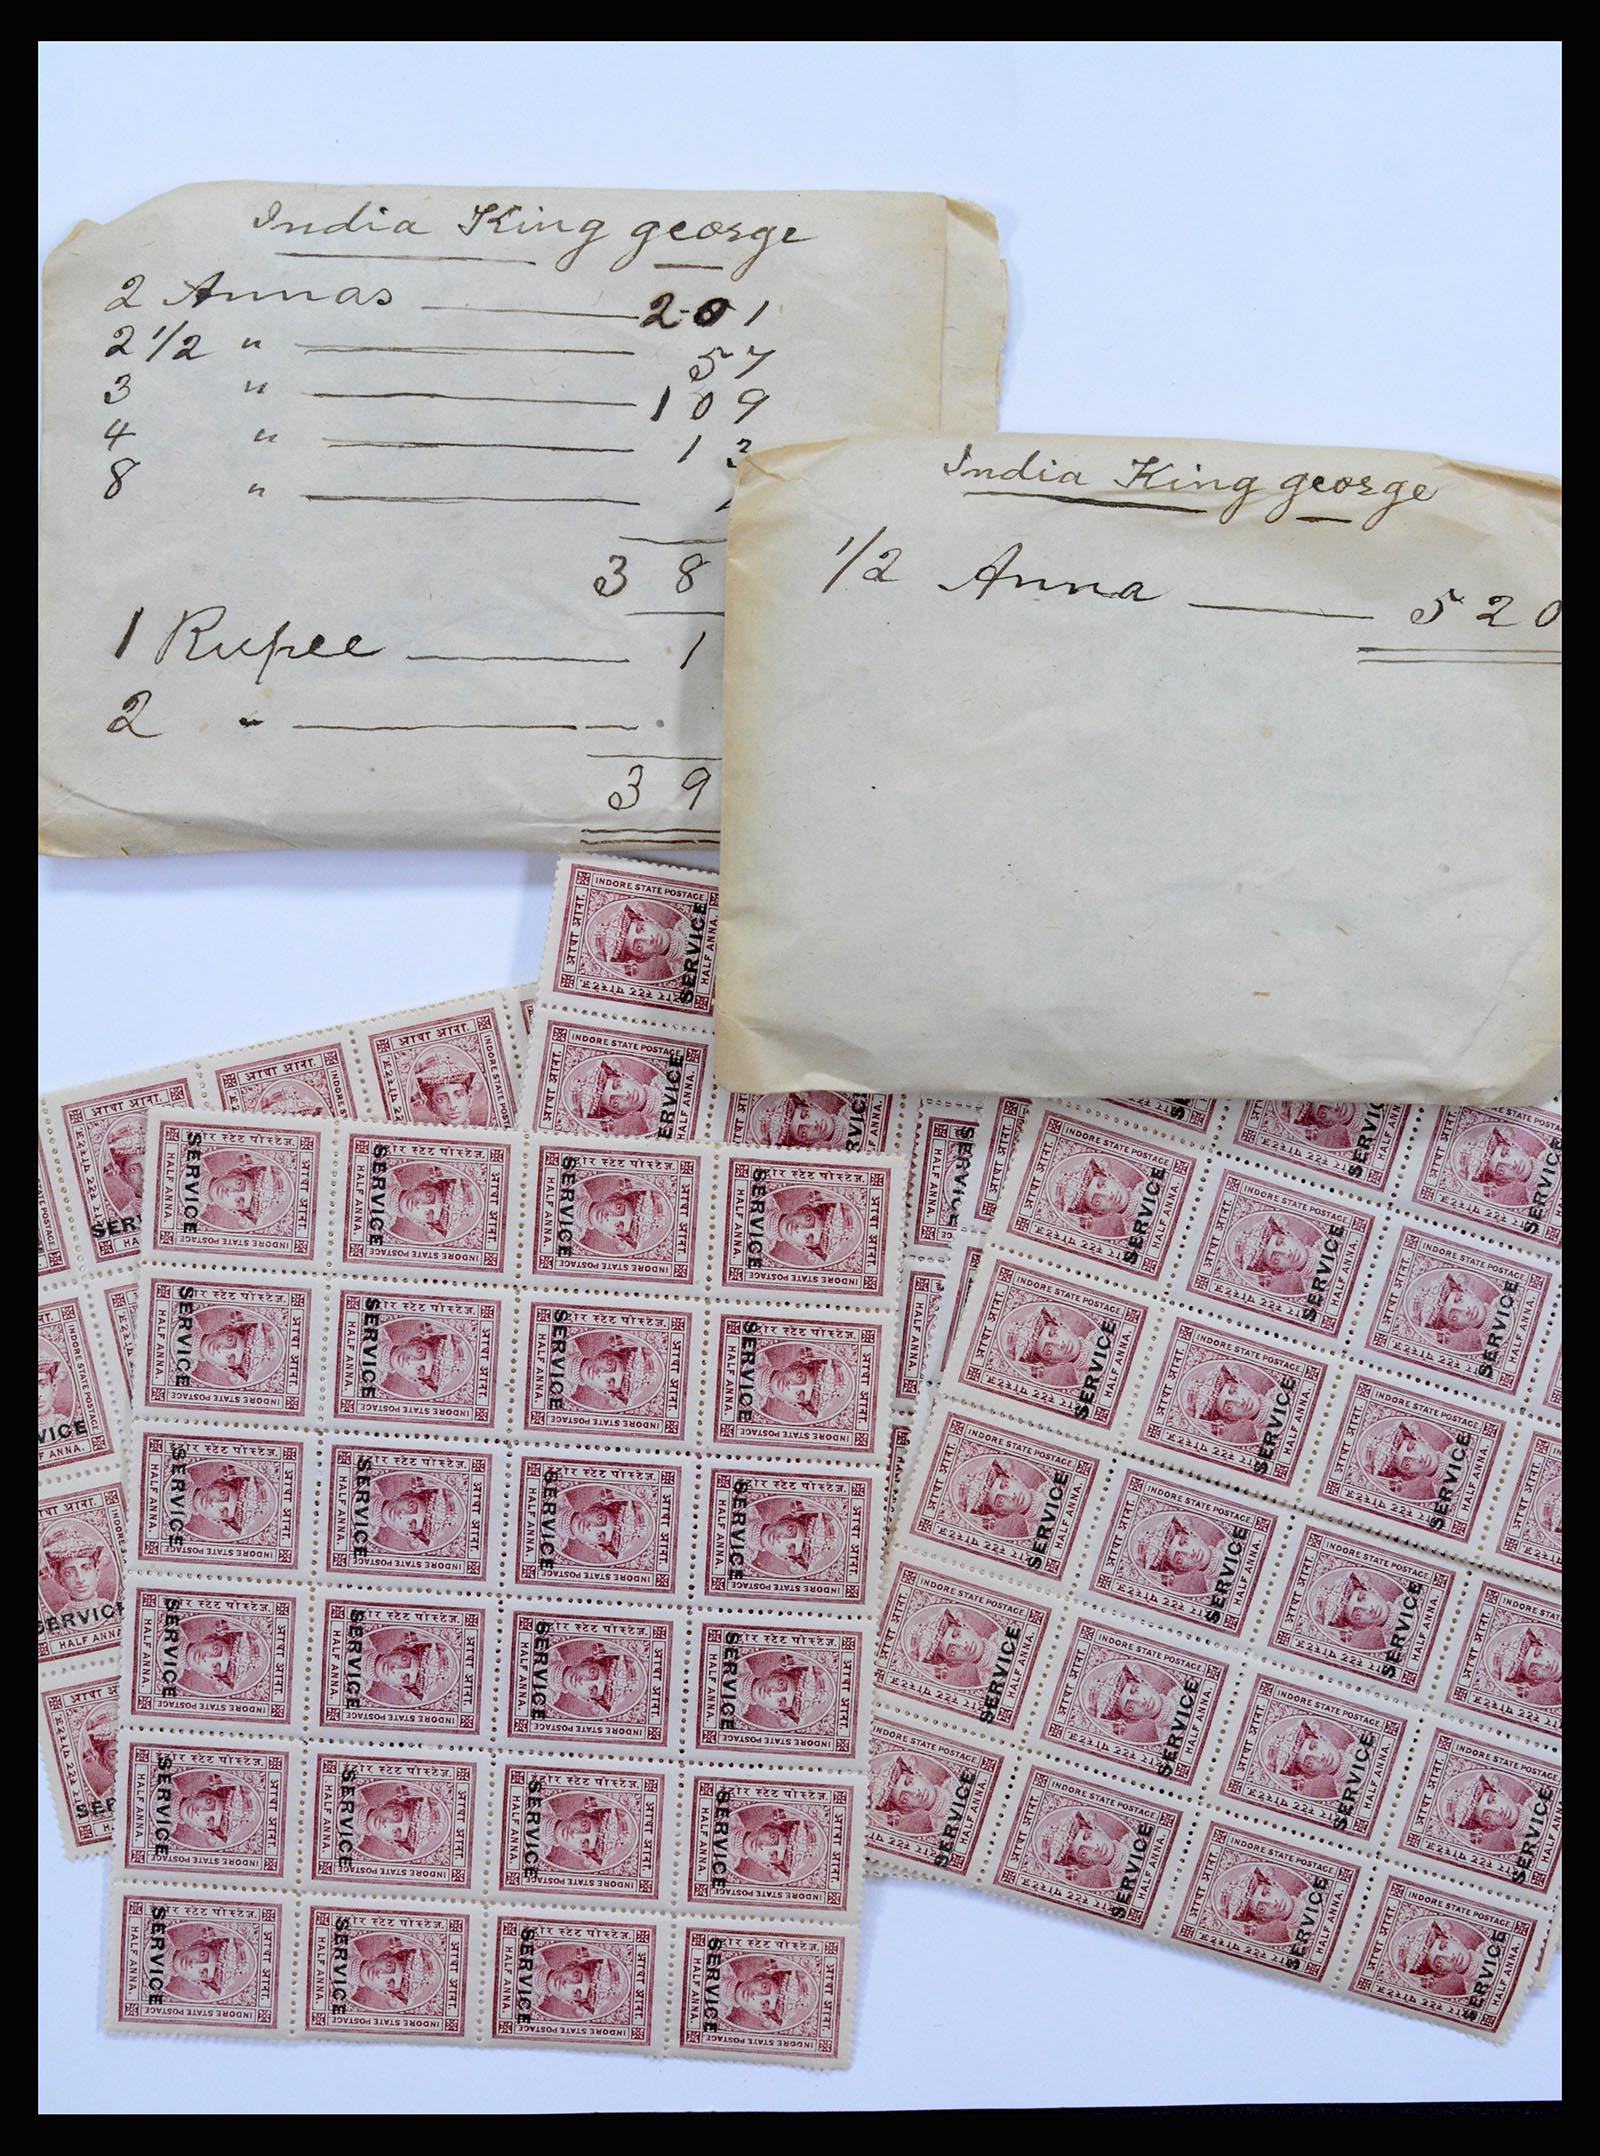 India King george
2 Annas — 201
2 1/2 " — 57
3 " — 109
4 " — 13
8 " —
38
1 Rupee — 1
2 " —
39
India King george
1/2 Anna — 520
INDORE STATE POSTAGE
आधा आना.
HALF ANNA.
इन्दोर स्टेट पोस्टेज.
SERVICE